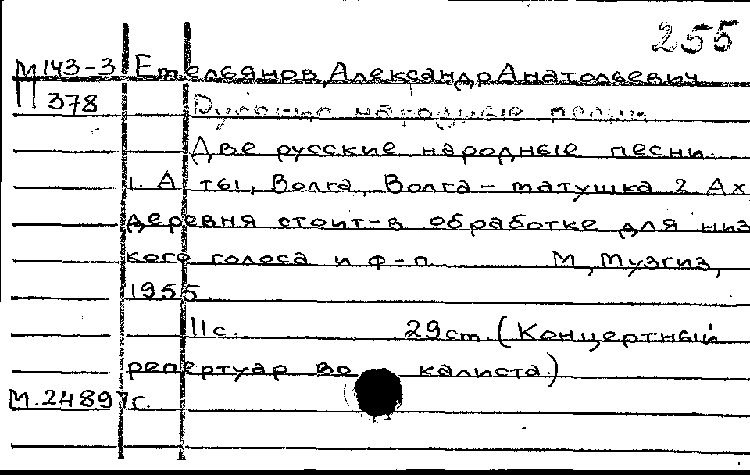 255
М143-3 Емельянов, Александр Анатольевич
П 378 народные песни
Две русские народные песни
1. А ты, Волга, Волга - матушка 2 Ах
деревня стоит - в обработке для низ
кого голоса и ф-п. М, Музгиз,
1955
11 с. 29 см. (Концертный
репертуар во калиста)
М.24897с.